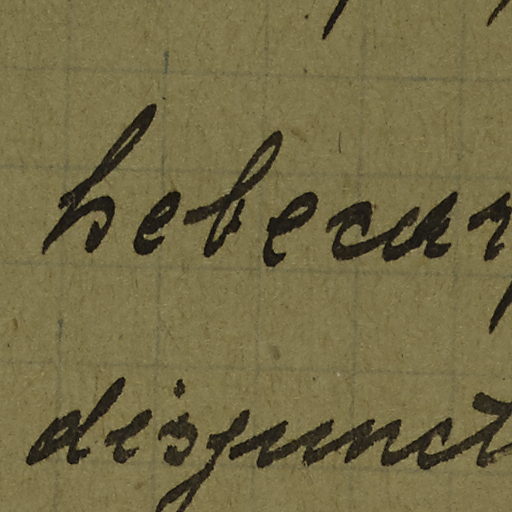 hebecar
disjunct